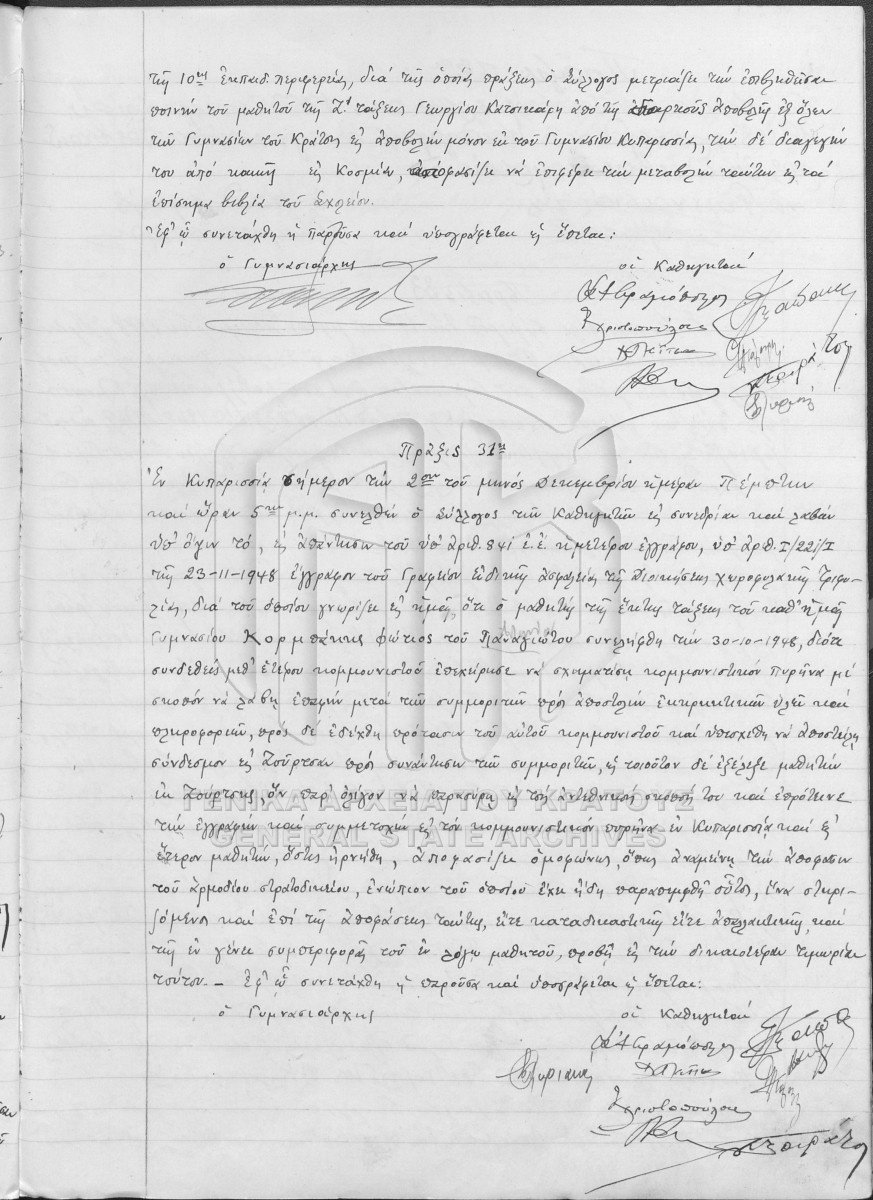 τῆς 10ης ἐκπαιδ. περιφερείας, διά τῆς ὁποίας πράξεως ὁ Σύλλογος μετριάζει τήν ἐπιβληθεῖσαν
ποινήν τοῦ μαθητοῦ τῆς Ζ' τάξεως Γεωργίου Κατσικάρη ἀπό τῆς διαρκοῦς ἀποβολῆς ἐξ ὅλων
τῶν Γυμνασίων τοῦ Κράτους εἰς ἀποβολήν μόνον ἐκ τοῦ Γυμνασίου Κυπαρισσίας, τήν δέ διαγωγήν
του ἀπό κακῆς εἰς Κοσμίαν, ἀποφασίζει νά ἐπιφέρει τήν μεταβολήν ταύτην εἰς τά
ἐπίσημα βιβλία τοῦ σχολείου.
Ἐφ' ᾧ συνετάχθη ἡ παροῦσα καί ὑπογράφεται ὡς ἕπεται:
ὁ Γυμνασιάρχης οἱ Καθηγηταί
Χριστοπούλου
Πρᾶξις 31η
Ἐν Κυπαρισσίᾳ σήμερον τήν 2αν τοῦ μηνός Δεκεμβρίου ἡμέραν Πέμπτην
καί ὥραν 5ην μ.μ. συνελθών ὁ Σύλλογος τῶν Καθηγητῶν εἰς συνεδρίαν καί λαβών
ὑπ' ὄψιν τό, εἰς ἀπάντησιν τοῦ ὑπ' ἀριθ. 841 ἐ.ἔ. ἡμετέρου ἐγγράφου, ὑπ' ἀριθ. I/22i/I
τῆς 23-11-1948 ἔγγραφον τοῦ Γραφείου εἰδικῆς ἀσφαλείας τῆς Διοικήσεως χωροφυλακῆς Τριφυ-
λίας, διά τοῦ ὁποίου γνωρίζει εἰς ἡμᾶς, ὅτι ὁ μαθητής τῆς ἕκτης τάξεως τοῦ καθ' ἡμᾶς
Γυμνασίου Κορμπάκης Φώτιος τοῦ Παναγιώτου συνελήφθη τήν 30-10-1948, διότι
συνδεθείς μεθ' ἑτέρου κομμουνιστοῦ ἐπεχείρησε νά σχηματίσῃ κομμουνιστικόν πυρῆνα μέ
σκοπόν νά λάβῃ ἐπαφήν μετά τῶν συμμοριτῶν πρός ἀποστολήν ἐκρηκτικῶν ὑλῶν καί
πληροφοριῶν, πρός δέ ἐδέχθη πρότασιν τοῦ αὐτοῦ κομμουνιστοῦ καί ὑπεσχέθη νά ἀποστείλῃ
σύνδεσμον εἰς Ζούρτσαν πρός συνάντησιν τῶν συμμοριτῶν, ὡς τοιοῦτον δέ ἐξέλεξε μαθητήν
ἐκ Ζούρτσης, ὅν παρ' ὀλίγον νά παρασύρῃ εἰς τάς ἀντεθνικάς σκοπούς του καί ἐπρότεινε
τήν ἐγγραφήν καί συμμετοχήν εἰς τόν κομμουνιστικόν πυρῆνα ἐν Κυπαρισσίᾳ καί εἰς
ἕτερον μαθητήν, ὅστις ἠρνήθη, ἀποφασίζει ὁμοφώνως, ὅπως ἀναμείνῃ τήν ἀπόφασιν
τοῦ ἁρμοδίου στρατοδικείου, ἐνώπιον τοῦ ὁποίου ἔχει ἤδη παραπεμφθῆ οὗτος, ἵνα στηρι-
ζόμενος καί ἐπί τῆς ἀποφάσεως ταύτης, εἴτε καταδικαστικῆς εἴτε ἀπαλλακτικῆς, καί
τῆς ἐν γένει συμπεριφορᾶς τοῦ ἐν λόγῳ μαθητοῦ, προβῇ εἰς τήν δικαιοτέραν τιμωρίαν
τούτου. — Ἐφ' ᾧ συνετάχθη ἡ παροῦσα καί ὑπογράφεται ὡς ἕπεται:
ὁ Γυμνασιάρχης οἱ Καθηγηταί
Χριστοπούλου
ΓΕΝΙΚΑ ΑΡΧΕΙΑ ΤΟΥ ΚΡΑΤΟΥΣ
GENERAL STATE ARCHIVES